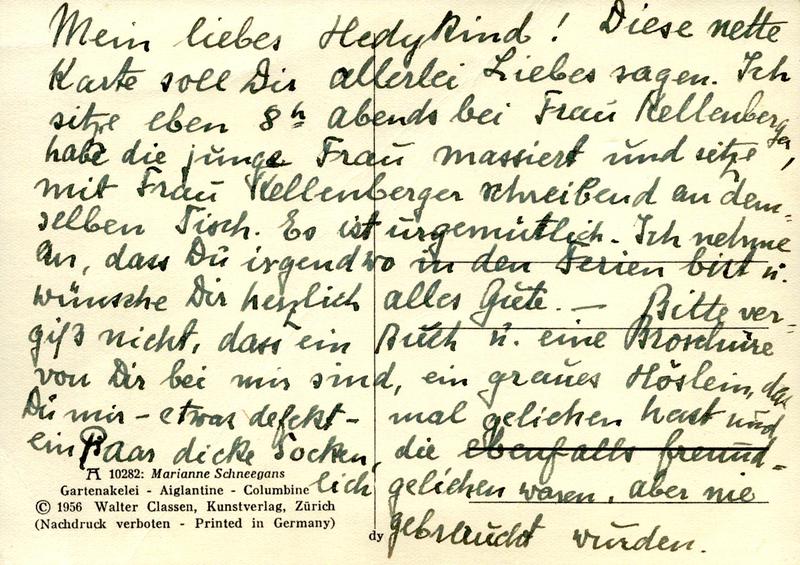 Mein liebes Hedykind! Diese nette
Karte soll Dir allerlei Liebes sagen. Ich
sitze eben 8h abends bei Frau Kellenberger,
habe die junge Frau massiert und sitze
mit Frau Kellenberger schreibend an dem-
selben Tisch. Es ist urgemütlich. Ich nehme
an, dass Du irgendwo in den Ferien bist u.
wünsche Dir herzlich alles Gute. — Bitte ver-
giß nicht, dass ein Buch u. eine Broschüre
von Dir bei mir sind, ein graues Höslein, das
Du mir - etwas defekt - mal geliehen hast und
ein Paar dicke Socken, die ebenfalls freund-
lich geliehen waren, aber nie
gebraucht wurden.
10282: Marianne Schneegans
Gartenakelei - Aiglantine - Columbine
© 1956 Walter Classen, Kunstverlag, Zürich
(Nachdruck verboten - Printed in Germany)
dy